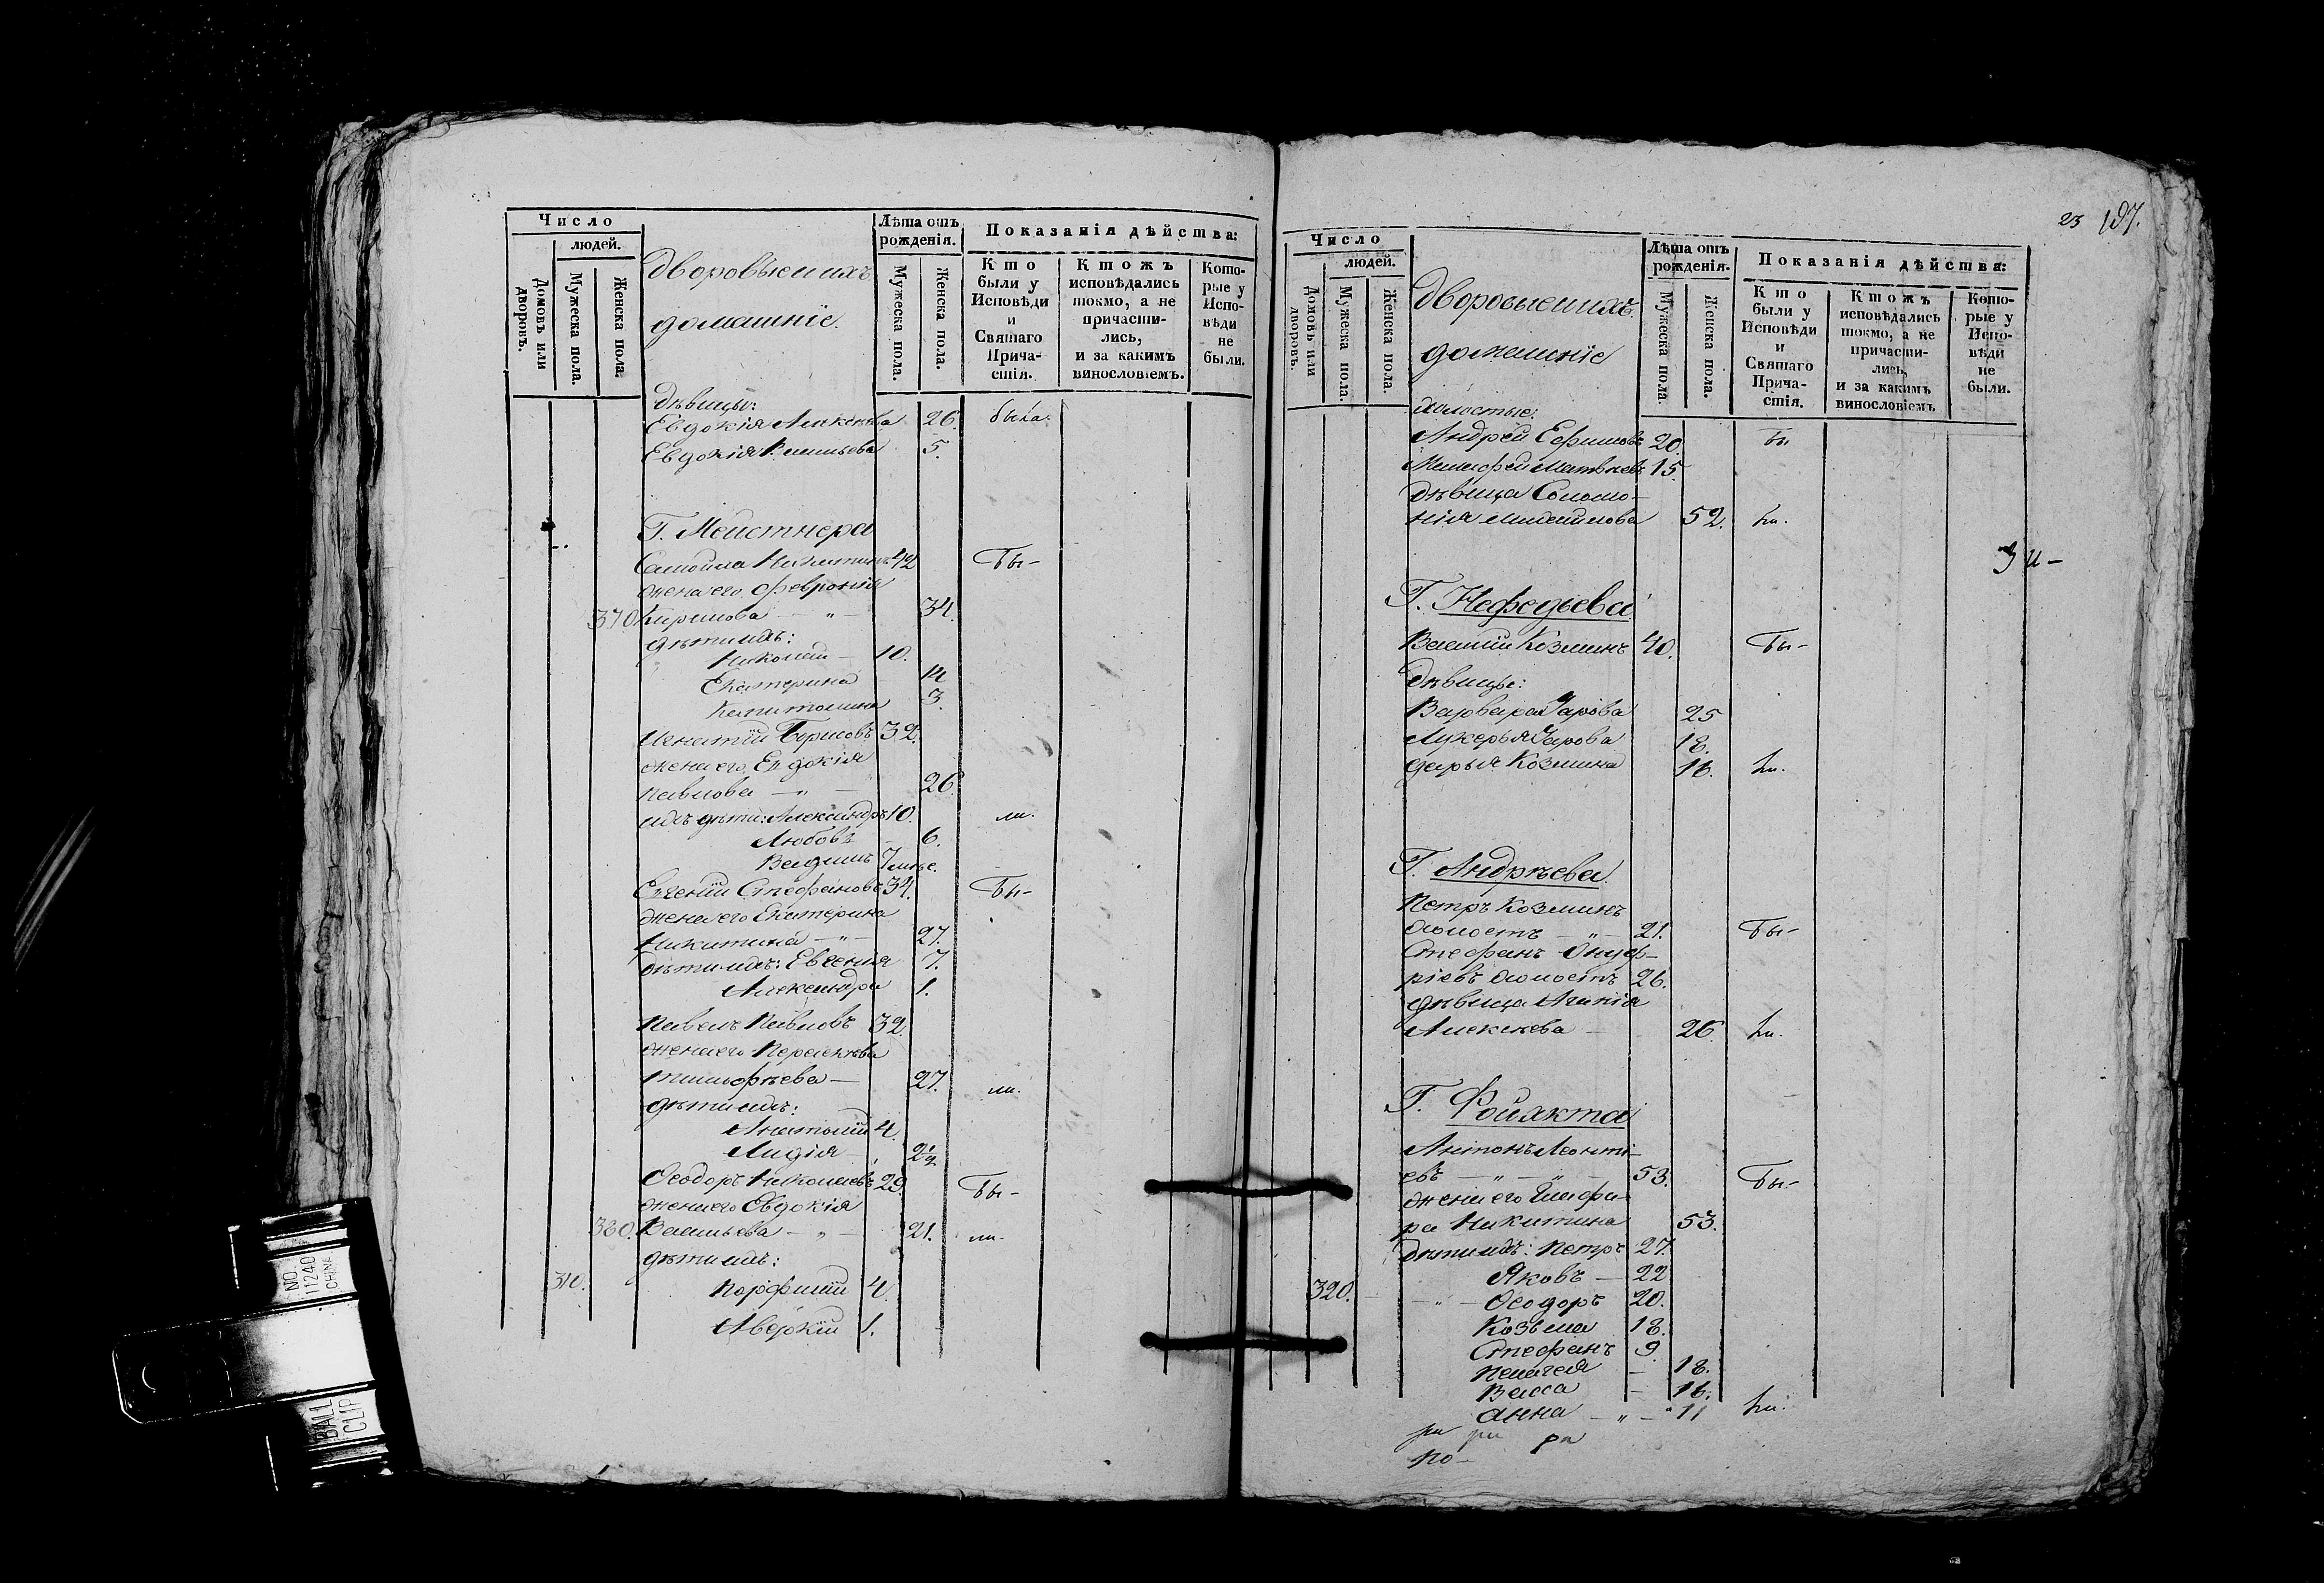 Число
людей.
Домовъ или дворовъ.
Мужеска пола.
Женска пола.
Дворовые и ихъ
домашніе.
Лѣта отъ рожденія.
Мужеска пола.
Женска пола.
Показанія дѣйства:
Кто были у Исповѣди и Святаго Прича-стія.
Ктожъ исповѣдались токмо, а не причасти-лись, и за какимъ винословіемъ.
Кото-рые у Испо-вѣди не были.
дѣвицы:
Евдокія Алексѣева 26. была.
Евдокія Васильева 5.
Г. Мейстнера
Самойла Никитинъ 42 Бы-
жена его Февронія
370 Кирилова — „ — 34.
дѣти ихъ:
Николай — 10.
Екатерина — 14
Капитолина 3.
Игнатій 32.
жена его Евдокія
Павлова — „ — 26
ихъ дѣти: Александръ 10. ли.
Любовь 6.
Вадимъ 7
Евгеній Стефановъ 34. Бы-
жена его Екатерина
Никитина — „ — 27.
дѣти ихъ: Евгенія 7.
Александра 1.
Павелъ Павловъ 32.
жена его Параскева
Тимофѣева — 27. ли.
дѣти ихъ:
Анатолій 4.
Лидія 2½
Ѳеодоръ Николаевъ 29. Бы-
жена его Евдокія
380. Васильева — „ — 21. ли.
дѣти ихъ:
310. Порфирій 4.
Аверкій 1.
23 197.
Число
людей.
Домовъ или дворовъ.
Мужеска пола.
Женска пола.
Дворовые и ихъ
домашніе
Лѣта отъ рожденія.
Мужеска пола.
Женска пола.
Показанія дѣйства:
Кто были у Исповѣди и Святаго Прича-стія.
Ктожъ исповѣдались токмо, а не причасти-лись, и за какимъ винословіемъ
Кото-рые у Испо-вѣди не были.
холостые:
Андрей Ефимовъ 20. Бы
Тимофей Матвѣевъ 15.
дѣвица Соломо-
нія Михайлова 52. ли.
Г. Нефедьева
Василій Козминъ 40. Бы-
дѣвицы:
Варвара 25
Лукерья 18.
Дарья Козмина 16. ли.
Г. Андрѣева.
Петръ Козминъ
холостъ — „ — 21. Бы-
Стефанъ Онуф-
ріевъ холостъ 26.
дѣвица Агапія
Алексѣева — 26. ли.
Г. Фойлкта
Антонъ Леонті-
евъ — „ — „ — 53. Бы-
жена его Глафи-
ра Никитина 53.
дѣти ихъ: Петръ 27.
Яковъ — 22
320. — „ — Ѳеодоръ 20.
Козьма 18.
Стефанъ 9.
Пелагея — 18.
Васса — 16.
Анна — „ — „ 11 ли.
по-